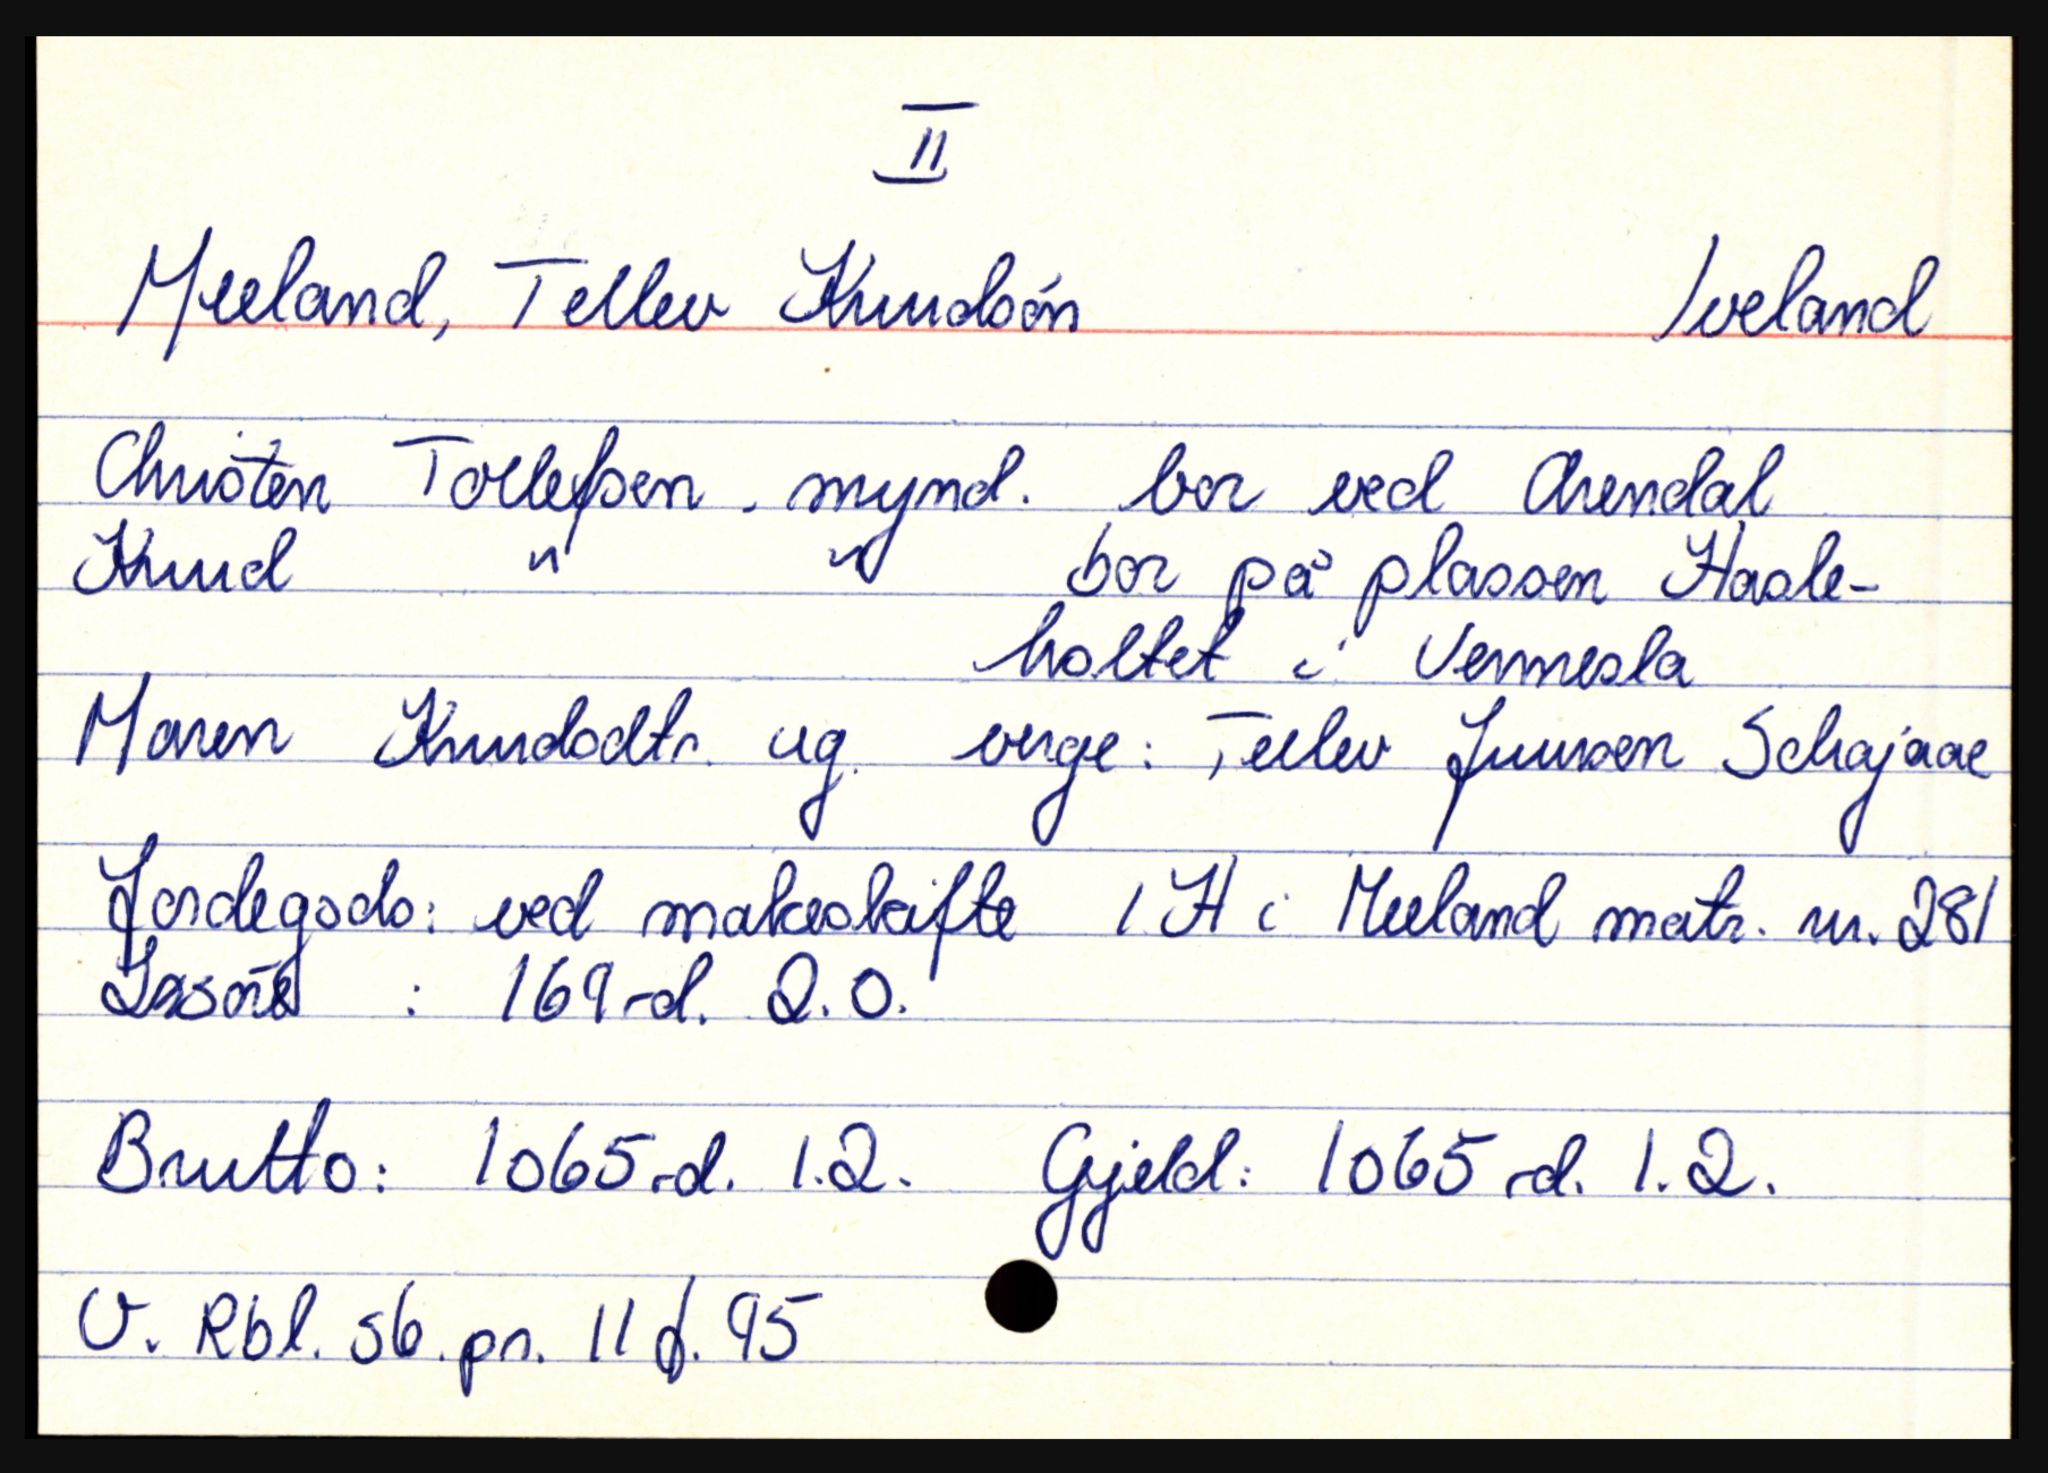 II
Meeland, Tellev Knudsøn Iveland
Christen Tollefsen. mynd. bor ved Arendal
Knud " " bor på plassen Hasle-
holtet i Vennesla
Maren Knudsdtr. ug. verge: Tellev Juusen Schajaae
Jordegods: ved makeskifte 1 H i Meeland matr. nr. 281
Løsøre : 169 rd. 2.0.
Brutto: 1065 rd. 1.2. Gjeld: 1065 rd. 1.2.
V. Rbl. sb. pr. 11 f. 95